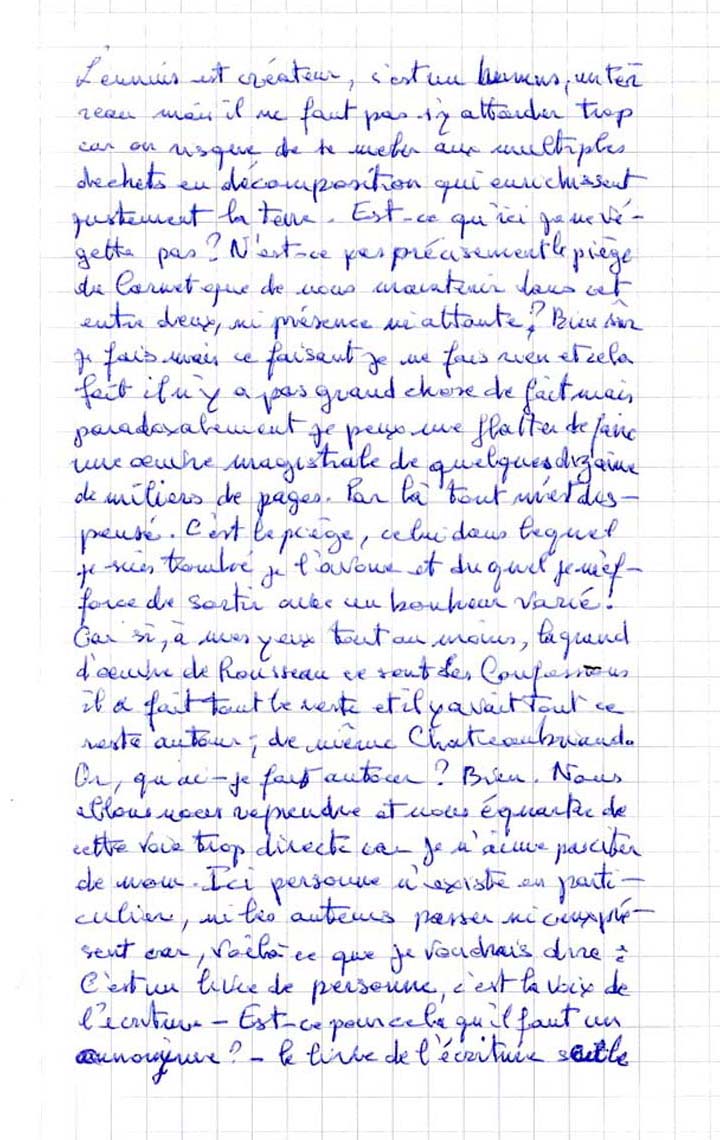 L'ennuis est créateur, c'est un humus, un ter
reau mais il ne faut pas s'y attarder trop
car on risque de se meler aux multiples
dechets en décomposition qui enrichissent
justement la terre. Est-ce qu'ici je ne vé-
gette pas? N'est-ce pas précisement le piège
du Carnet que de nous maintenir dans cet
entre deux, ni présence ni attente? Bien sûr
je fais mais ce faisant je ne fais rien et cela
fait il n'y a pas grand chose de fait mais
paradoxalement je peux me flatter de faire
une œuvre magistrale de quelques dizaine
de miliers de pages. Par là tout m'est dis-
pensé. C'est le piège, celui dans lequel
je suis tombé je l'avoue et duquel je m'ef-
force de sortir avec un bonheur varié.
Car si, à mes yeux tout au moins, la grand
d'œuvre de Rousseau ce sont les Confessions
il a fait tout le reste et il y avait tout ce
reste autour; de même Chateaubriand.
Or, qu'ai-je fait autour? Bien. Nous
allons nous reprendre et nous équarter de
cette voie trop directe car je n'aime pas citer
de nom. Ici personne n'existe en parti-
culier, ni les auteurs passer ni ceux pré-
sent car, voilà ce que je voudrais dire :
C'est un livre de personne, c'est la voix de
l'écriture - Est-ce pour cela qu'il faut un
annonyme? - le livre de l'écriture seule